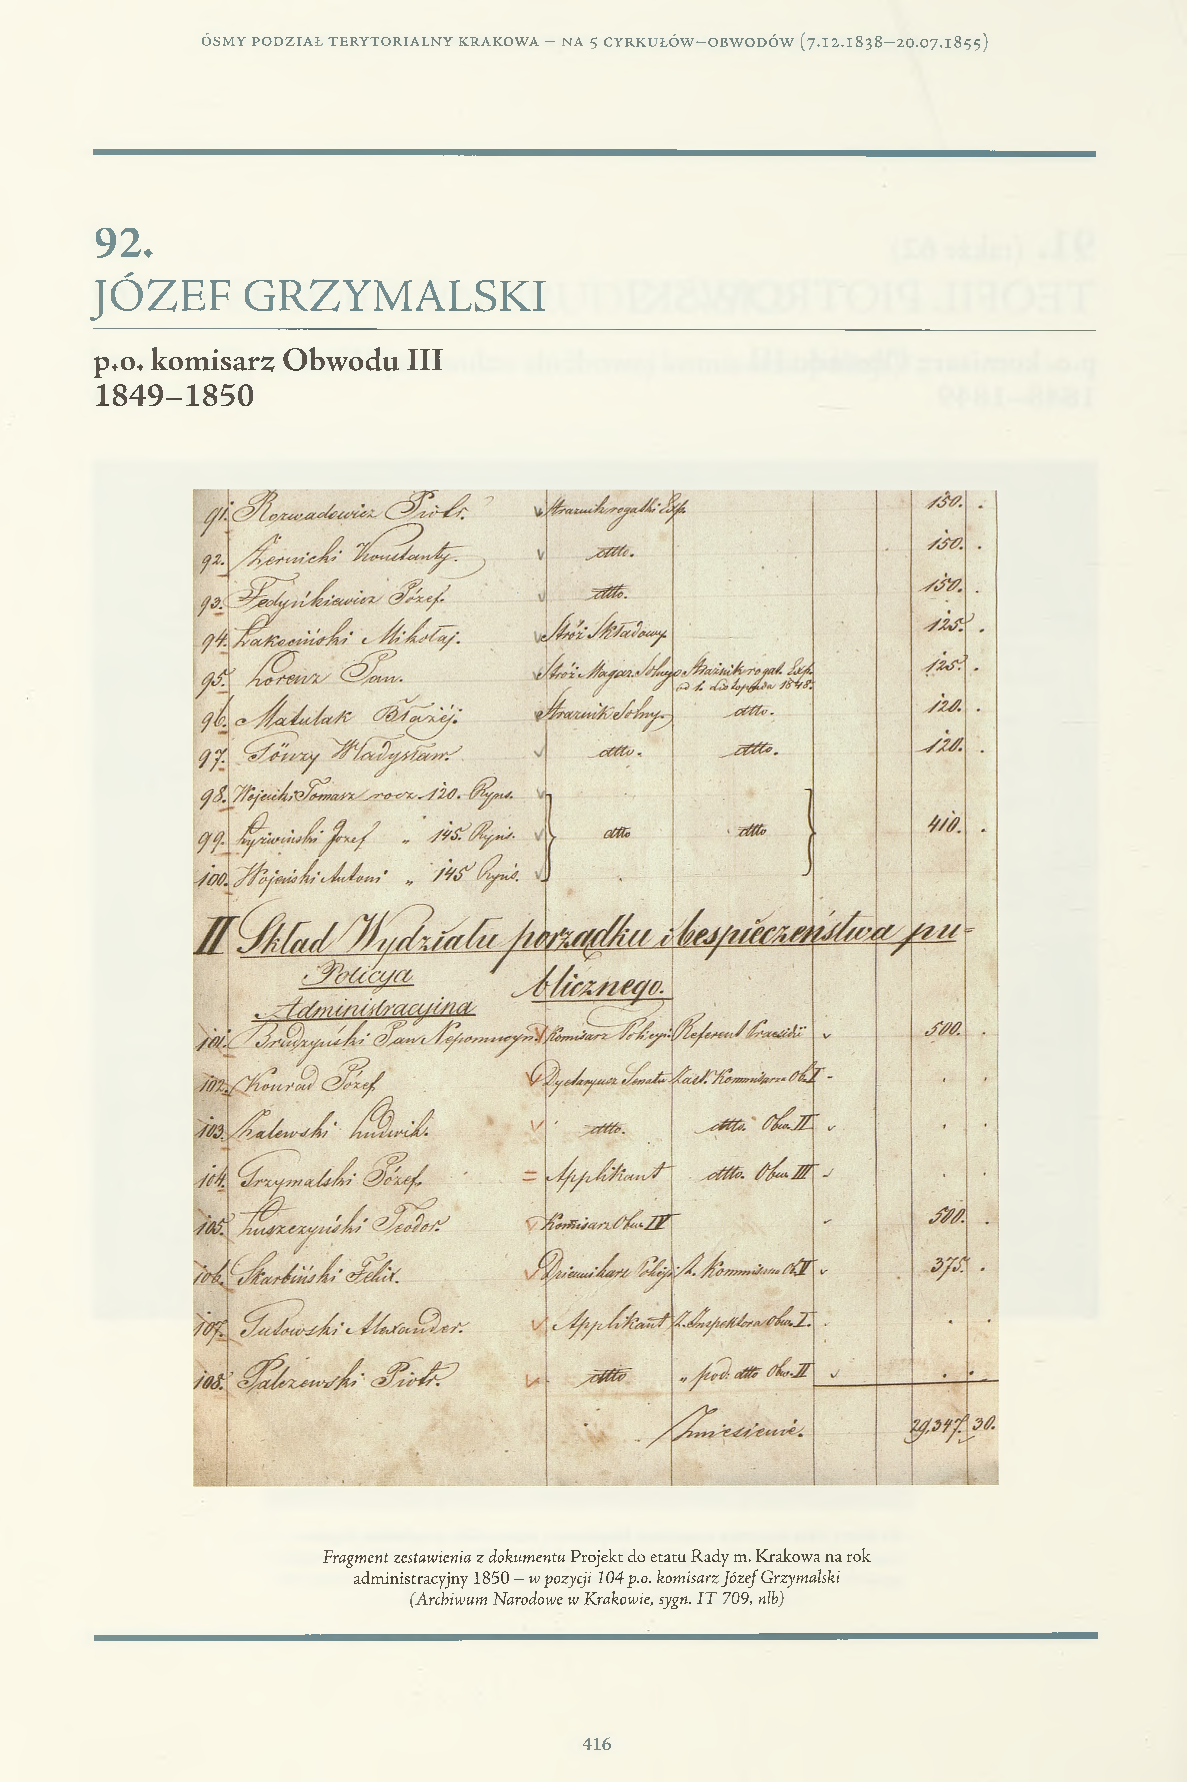 ÓSMY PODZIAŁ TERYTORIALNY KRAKOWA – NA 5 CYRKUŁÓW–OBWODÓW (7.12.1838–20.07.1855)
92.
JÓZEF GRZYMALSKI
p.o. komisarz Obwodu III
1849–1850
91. Rozwadewicz Piotr. Strażnik rogatki Exp. 150.
92. Konstanty. dtto. 150.
93. Fedyńkiewicz Józef. dtto. 150.
94. Mikołaj. Stróż Składowy 125.
95. Lorenz Jan. Stróż Magaz. Solnego Strażnik rogat. Exp. 125.
od 1. Listopada 1848.
96. Matulak Błażéj. Straznik Solny. dtto. 120.
97. Władysław. dtto. dtto. 120.
98. Wojcicki Tomasz rocz. 120. Ryns.
99. Józef „ 145. Ryns. dtto dtto 410.
100. Antoni „ 145 Ryns.
II Skład Wydziału porządku i bespieczeństwa pu-
Policya blicznego.
Administracyina
101. Brudzyński Jan Nepomucyn. Komisarz Policyi Referent Praesidii 500.
102. Konrad Józef Dyetaryusz Senatu Zast. Kommisarza Ob. I
103. Zalewski Ludwik. dtto. dtto. Obw. II
104. Grzymalski Józef. Applikant dtto. Obw. III
105. Łuszczyński Teodor. Komisarz Obw. IV 500.
106. Skarbiński Felix. Dziennikarz Policyi Z. Kommisarza Ob. V 375.
107. Gutowski Alexander. Applikant Z. Inspektora Obw. I.
108. Palczewski Piotr. dtto „ pod: dtto Obw. II
Zniesienie. 29,347. 30.
Fragment zestawienia z dokumentu Projekt do etatu Rady m. Krakowa na rok
administracyjny 1850 – w pozycji 104 p.o. komisarz Józef Grzymalski
(Archiwum Narodowe w Krakowie, sygn. IT 709, nlb)
416